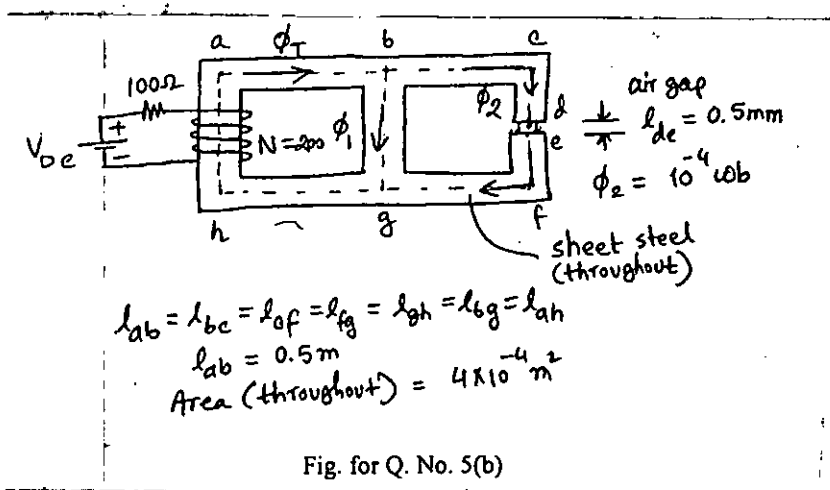 a ϕ_T b c
100Ω
+
V_DC
−
N=200 ϕ_1
ϕ_2
d
e
air gap
l_de = 0.5mm
ϕ_2 = 10^-4 wb
h g f
sheet steel
(throughout)
l_ab = l_bc = l_of = l_fg = l_gh = l_bg = l_ah
l_ab = 0.5m
Area (throughout) = 4×10^-4 m^2
Fig. for Q. No. 5(b)